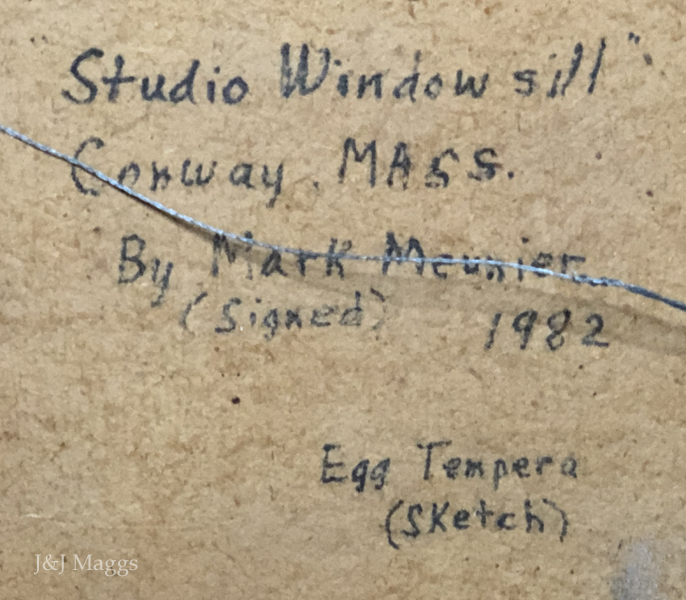 "Studio Window sill"
Conway, MASS.
By Mark Meunier
(Signed) 1982
Egg Tempera
(Sketch)
J&J Maggs